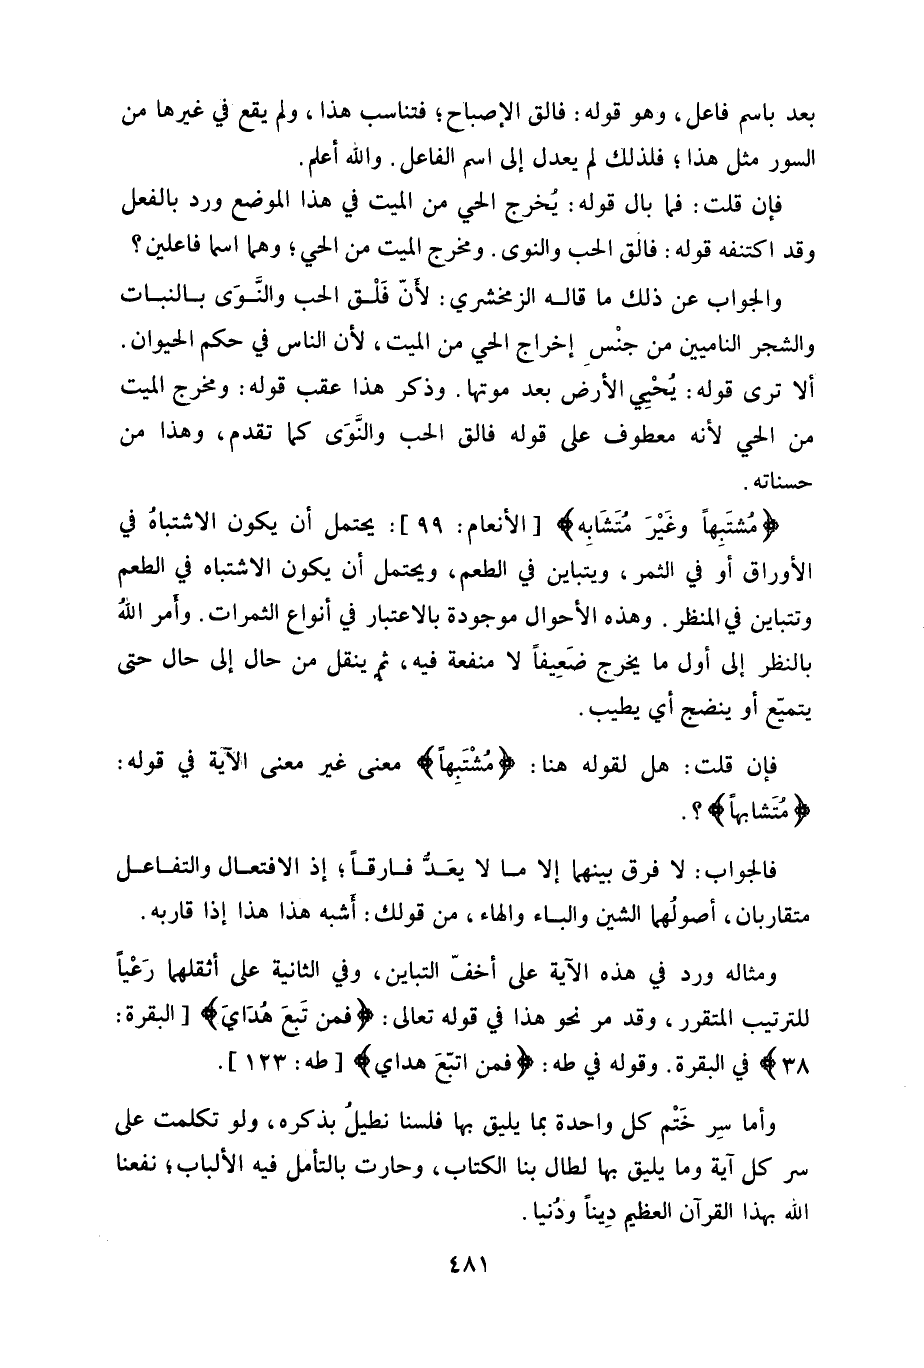 بعد باسم فاعل، وهو قوله: فالق الإصباح؛ فتناسب هذا، ولم يقع في غيرها من
السور مثل هذا؛ فلذلك لم يعدل إلى اسم الفاعل. والله أعلم.
فإن قلت: فما بال قوله: يُخرج الحي من الميت في هذا الموضع ورد بالفعل
وقد اكتنفه قوله: فالق الحب والنوى. ومخرج الميت من الحي؛ وهما اسما فاعلين؟
والجواب عن ذلك ما قاله الزمخشري: لأَنّ فَلْق الحب والنَّوَى بالنبات
والشجر الناميين من جنْسِ إخراج الحي من الميت، لأن الناس في حكم الحيوان.
ألا ترى قوله: يُحْيِي الأرض بعد موتها. وذكر هذا عقب قوله: ومخرج الميت
من الحي لأنه معطوف على قوله فالق الحب والنَّوَى كما تقدم، وهذا من
حسناته.
﴿مُشتَبِهاً وغَيْرَ مُتَشَابِه﴾ [الأنعام: ٩٩]: يحتمل أن يكون الاشتباهُ في
الأوراق أو في الثمر، ويتباين في الطعم، ويحتمل أن يكون الاشتباه في الطعم
وتتباين في المنظر. وهذه الأحوال موجودة بالاعتبار في أنواع الثمرات. وأَمر اللهُ
بالنظر إلى أول ما يخرج ضَعِيفاً لا منفعة فيه، ثم ينقل من حال إلى حال حتى
يتميّع أو ينضج أي يطيب.
فإن قلت: هل لقوله هنا: ﴿مُشْتَبِهاً﴾ معنى غير معنى الآية في قوله:
﴿مُتَشابهاً﴾؟.
فالجواب: لا فرق بينهما إلا ما لا يعَدُّ فارقاً؛ إذ الافتعال والتفاعل
متقاربان، أصولُهما الشين والباء والهاء، من قولك: أَشبه هذا هذا إذا قاربه.
ومثاله ورد في هذه الآية على أخفّ التباين، وفي الثانية على أثقلها رَعْياً
للترتيب المتقرر، وقد مر نحو هذا في قوله تعالى: ﴿فمن تَبِعَ هُدَايَ﴾ [البقرة:
٣٨﴾ في البقرة. وقوله في طه: ﴿فمن اتبّعَ هداي﴾ [طه: ١٢٣].
وأما سِر خَتْم كل واحدة بما يليق بها فلسنا نطيلُ بذكره، ولو تكلمت على
سر كل آية وما يليق بها لطال بنا الكتاب، وحارت بالتأمل فيه الألباب؛ نفعنا
الله بهذا القرآن العظيم دِيناً ودُنيا.
٤٨١